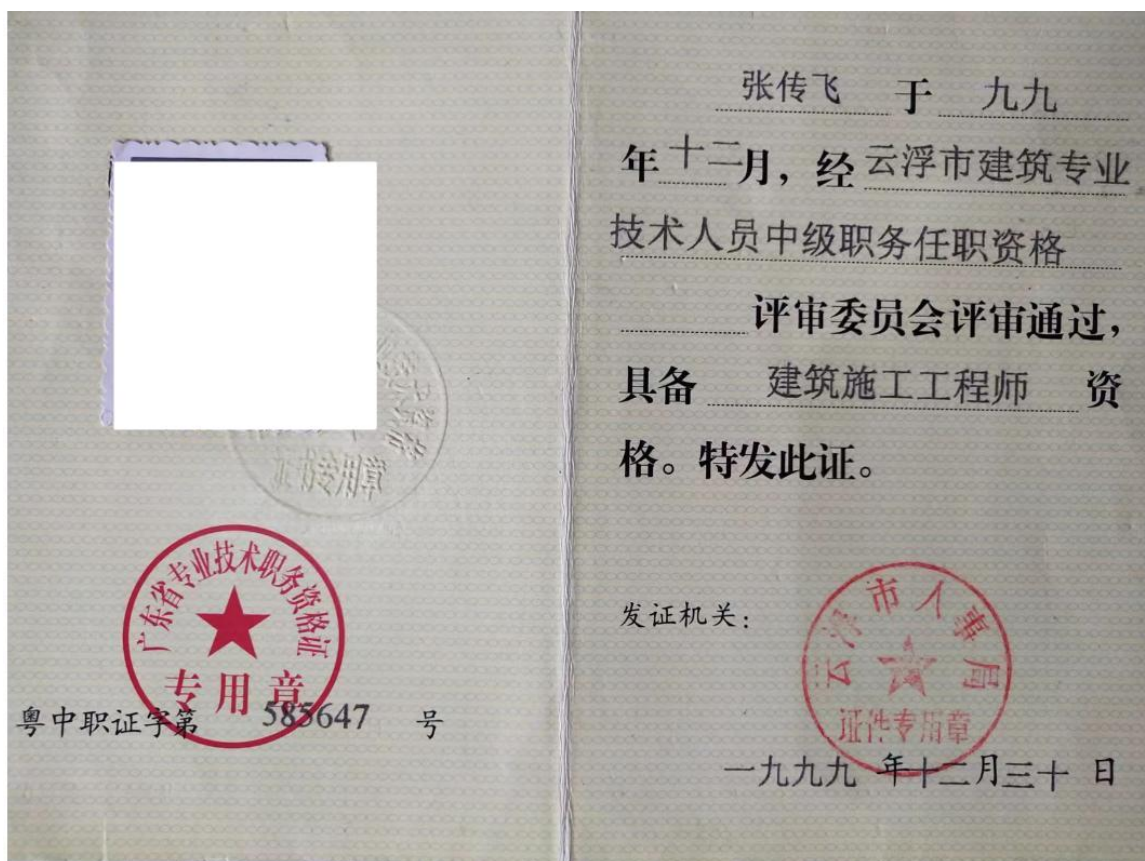 证书专用章
广东省专业技术职务资格证
专用章
粤中职证字第 585647 号
张传飞 于 九九
年十二月，经云浮市建筑专业
技术人员中级职务任职资格
评审委员会评审通过，
具备 建筑施工工程师 资
格。特发此证。
发证机关：
云浮市人事局
证件专用章
一九九九 年十二月三十 日